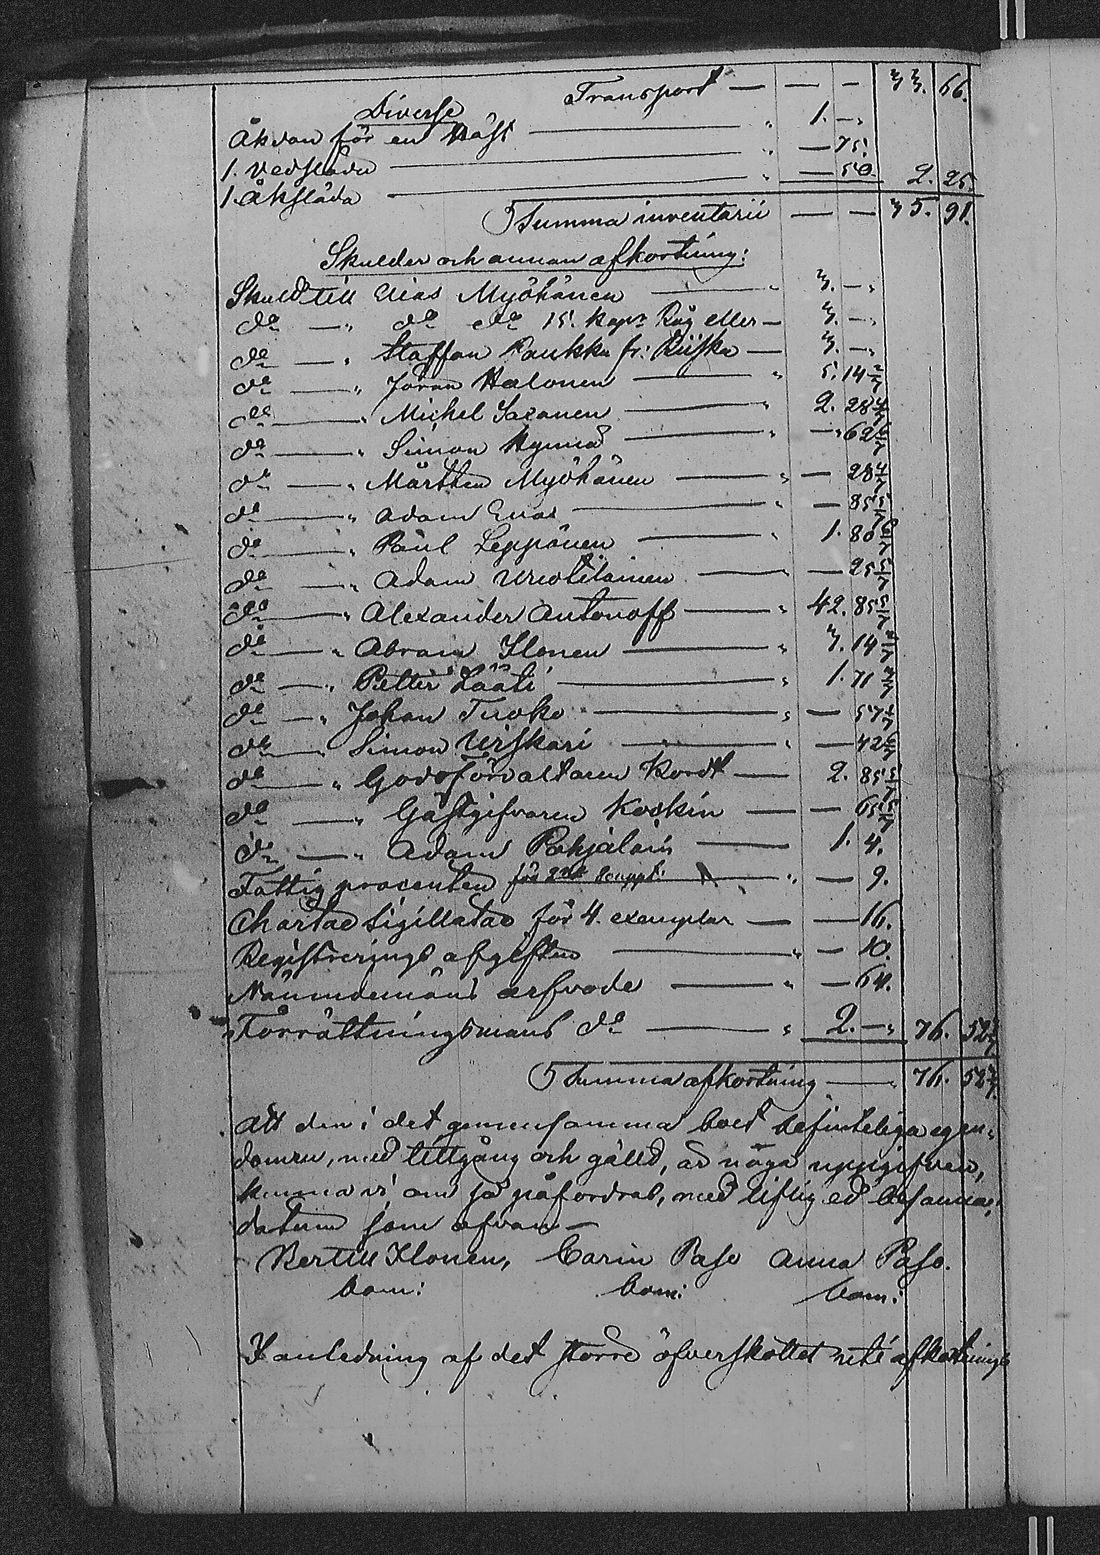 Transport — — — 33. 66.
Diverse
Åkdon för en Häst — " 1. — "
1. Vedsläda — " — 75.
1. Åksläda — " — 50. 2. 25.
Summa inventarii — — 35. 91.
Skulder och annan afkortning:
Skuld till Elias Myöhänen — " 3. — "
do — " do do 15. kapr Råg eller — 3. — "
do — " Staffan Paukku fr: Ruska — 3. — "
do — " Jöran Halonen — " 5. 14 2/7
do — " Michel Saxanen — " 2. 28 4/7
do — " Simon Hynnä — " — 62 6/7
do — " Mårthen Myöhänen — " — 28 4/7
do — " Adam — " — 85 5/7
do — " Påul Leppänen — " 1. 80 6/7
do — " Adam — " — 25 5/7
do — " Alexander Antonoff — " 42. 85 5/7
do — " Abram Ilonen — " 7. 14 2/7
do — " Petter Lääti — " 1. 71 3/7
do — " Johan Turoko — " — 57 1/7
do — " Simon Urskari — " — 42 6/7
do — " Godsförvaltaren Kordt — 2. 85 5/7
do — " Gästgifvaren Kockin — — 65 5/7
do — " Adam Pohjalain — 1. 4.
Fattig procenten för — " — 9.
Chartae Sigillatae för 4. exemplar — — 16.
Registrerings afgiften — " — 10.
Nämndemans arfvode — " — 64.
Förrättningsmans do — " 2. — " 76. 52 3/7
Summa afkortning — " 76. 52 3/7
Att den i det gemensamma boet befinteliga egen-
domen, med tillgång och gälld, är noga uppgifven,
kunna vi om så påfordras, med liflig ed besanna;
datum som ofvan —
Bertill Ilonen, Carin Paso Anna Paso.
bom: bom: bom:
I anledning af det större öfverskottet uti afkortnings